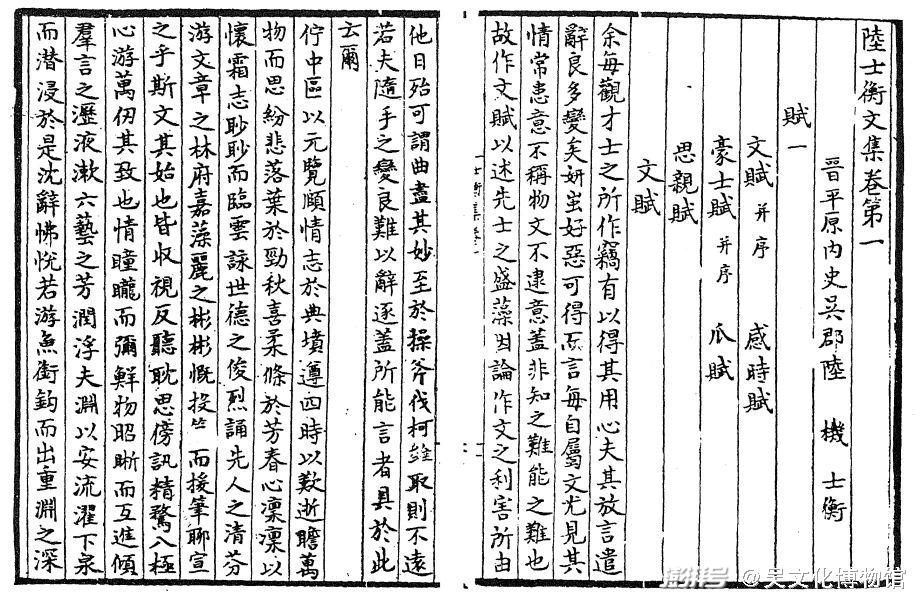 陸士衡文集卷第一
晉平原内史吳郡陸 機 士衡
賦一
文賦 并序 感時賦
豪士賦 并序 瓜賦
思親賦
文賦
余每觀才士之所作竊有以得其用心夫其放言遣
辭良多變矣妍蚩好惡可得而言每自屬文尤見其
情常患意不稱物文不逮意蓋非知之難能之難也
故作文賦以述先士之盛藻因論作文之利害所由
士衡集卷一
他日殆可謂曲盡其妙至於操斧伐柯雖取則不遠
若夫隨手之變良難以辭逐蓋所能言者具於此
云爾
佇中區以元覽頤情志於典墳遵四時以歎逝瞻萬
物而思紛悲落葉於勁秋喜柔條於芳春心凜凜以
懷霜志眇眇而臨雲詠世德之俊烈誦先人之清芬
游文章之林府嘉藻麗之彬彬慨投竺而援筆聊宣
之乎斯文其始也皆收視反聽耽思傍訊精騖八極
心游萬仞其致也情曈曨而彌鮮物昭晰而互進傾
羣言之瀝液漱六藝之芳潤浮夫淵以安流濯下泉
而潛浸於是沈辭怫悅若游魚銜鈎而出重淵之深
澎湃号@吴文化博物馆